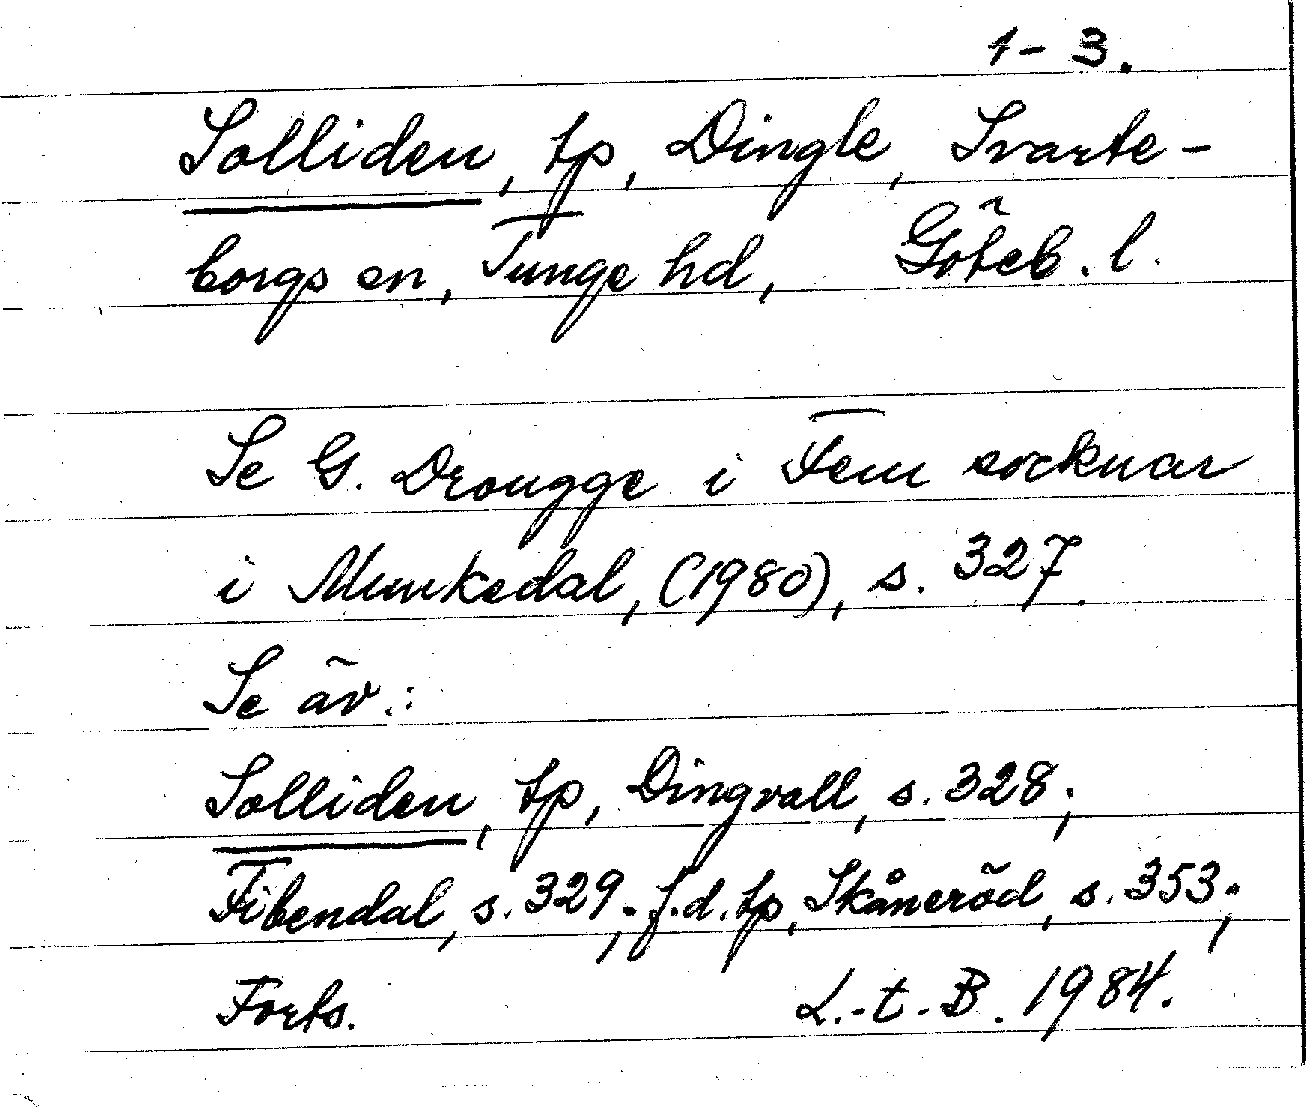 1-3.
Solliden, tp, Dingle, Svarte-
borgs sn, Tunge hd, Göteb. l.
Se G. Drougge i Fem socknar
i Munkedal, (1980), s. 327.
Se äv.:
Solliden, tp, Dingvall, s. 328;
Fibendal, s. 329; f.d. tp, Skåneröd, s. 353;
Forts. L.-t.-B. 1984.